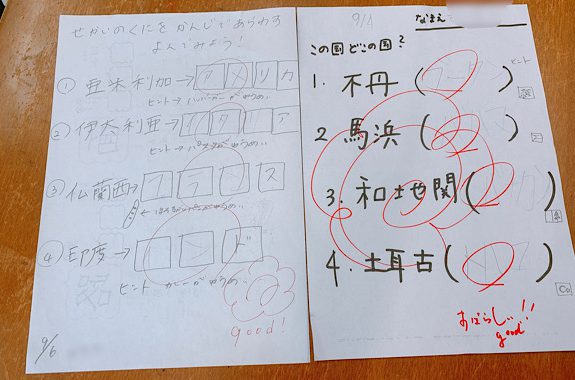 せかいのくにを かんじであらわす
よんでみよう!
① 亜米利加→アメリカ
ヒント→ハンバーガーがゆうめい
② 伊太利亜→イタリア
ヒント→パスタがゆうめい
③ 仏蘭西→フランス
④ 印度→インド
ヒント カレーがゆうめい
good!
9/6
9/4 なまえ
この国どこの国?
ヒント
1. 不丹 (ブータン)
2 馬浜 (
3. 和地関 (
4. 土耳古 (トルコ)
すばらしい!!
good